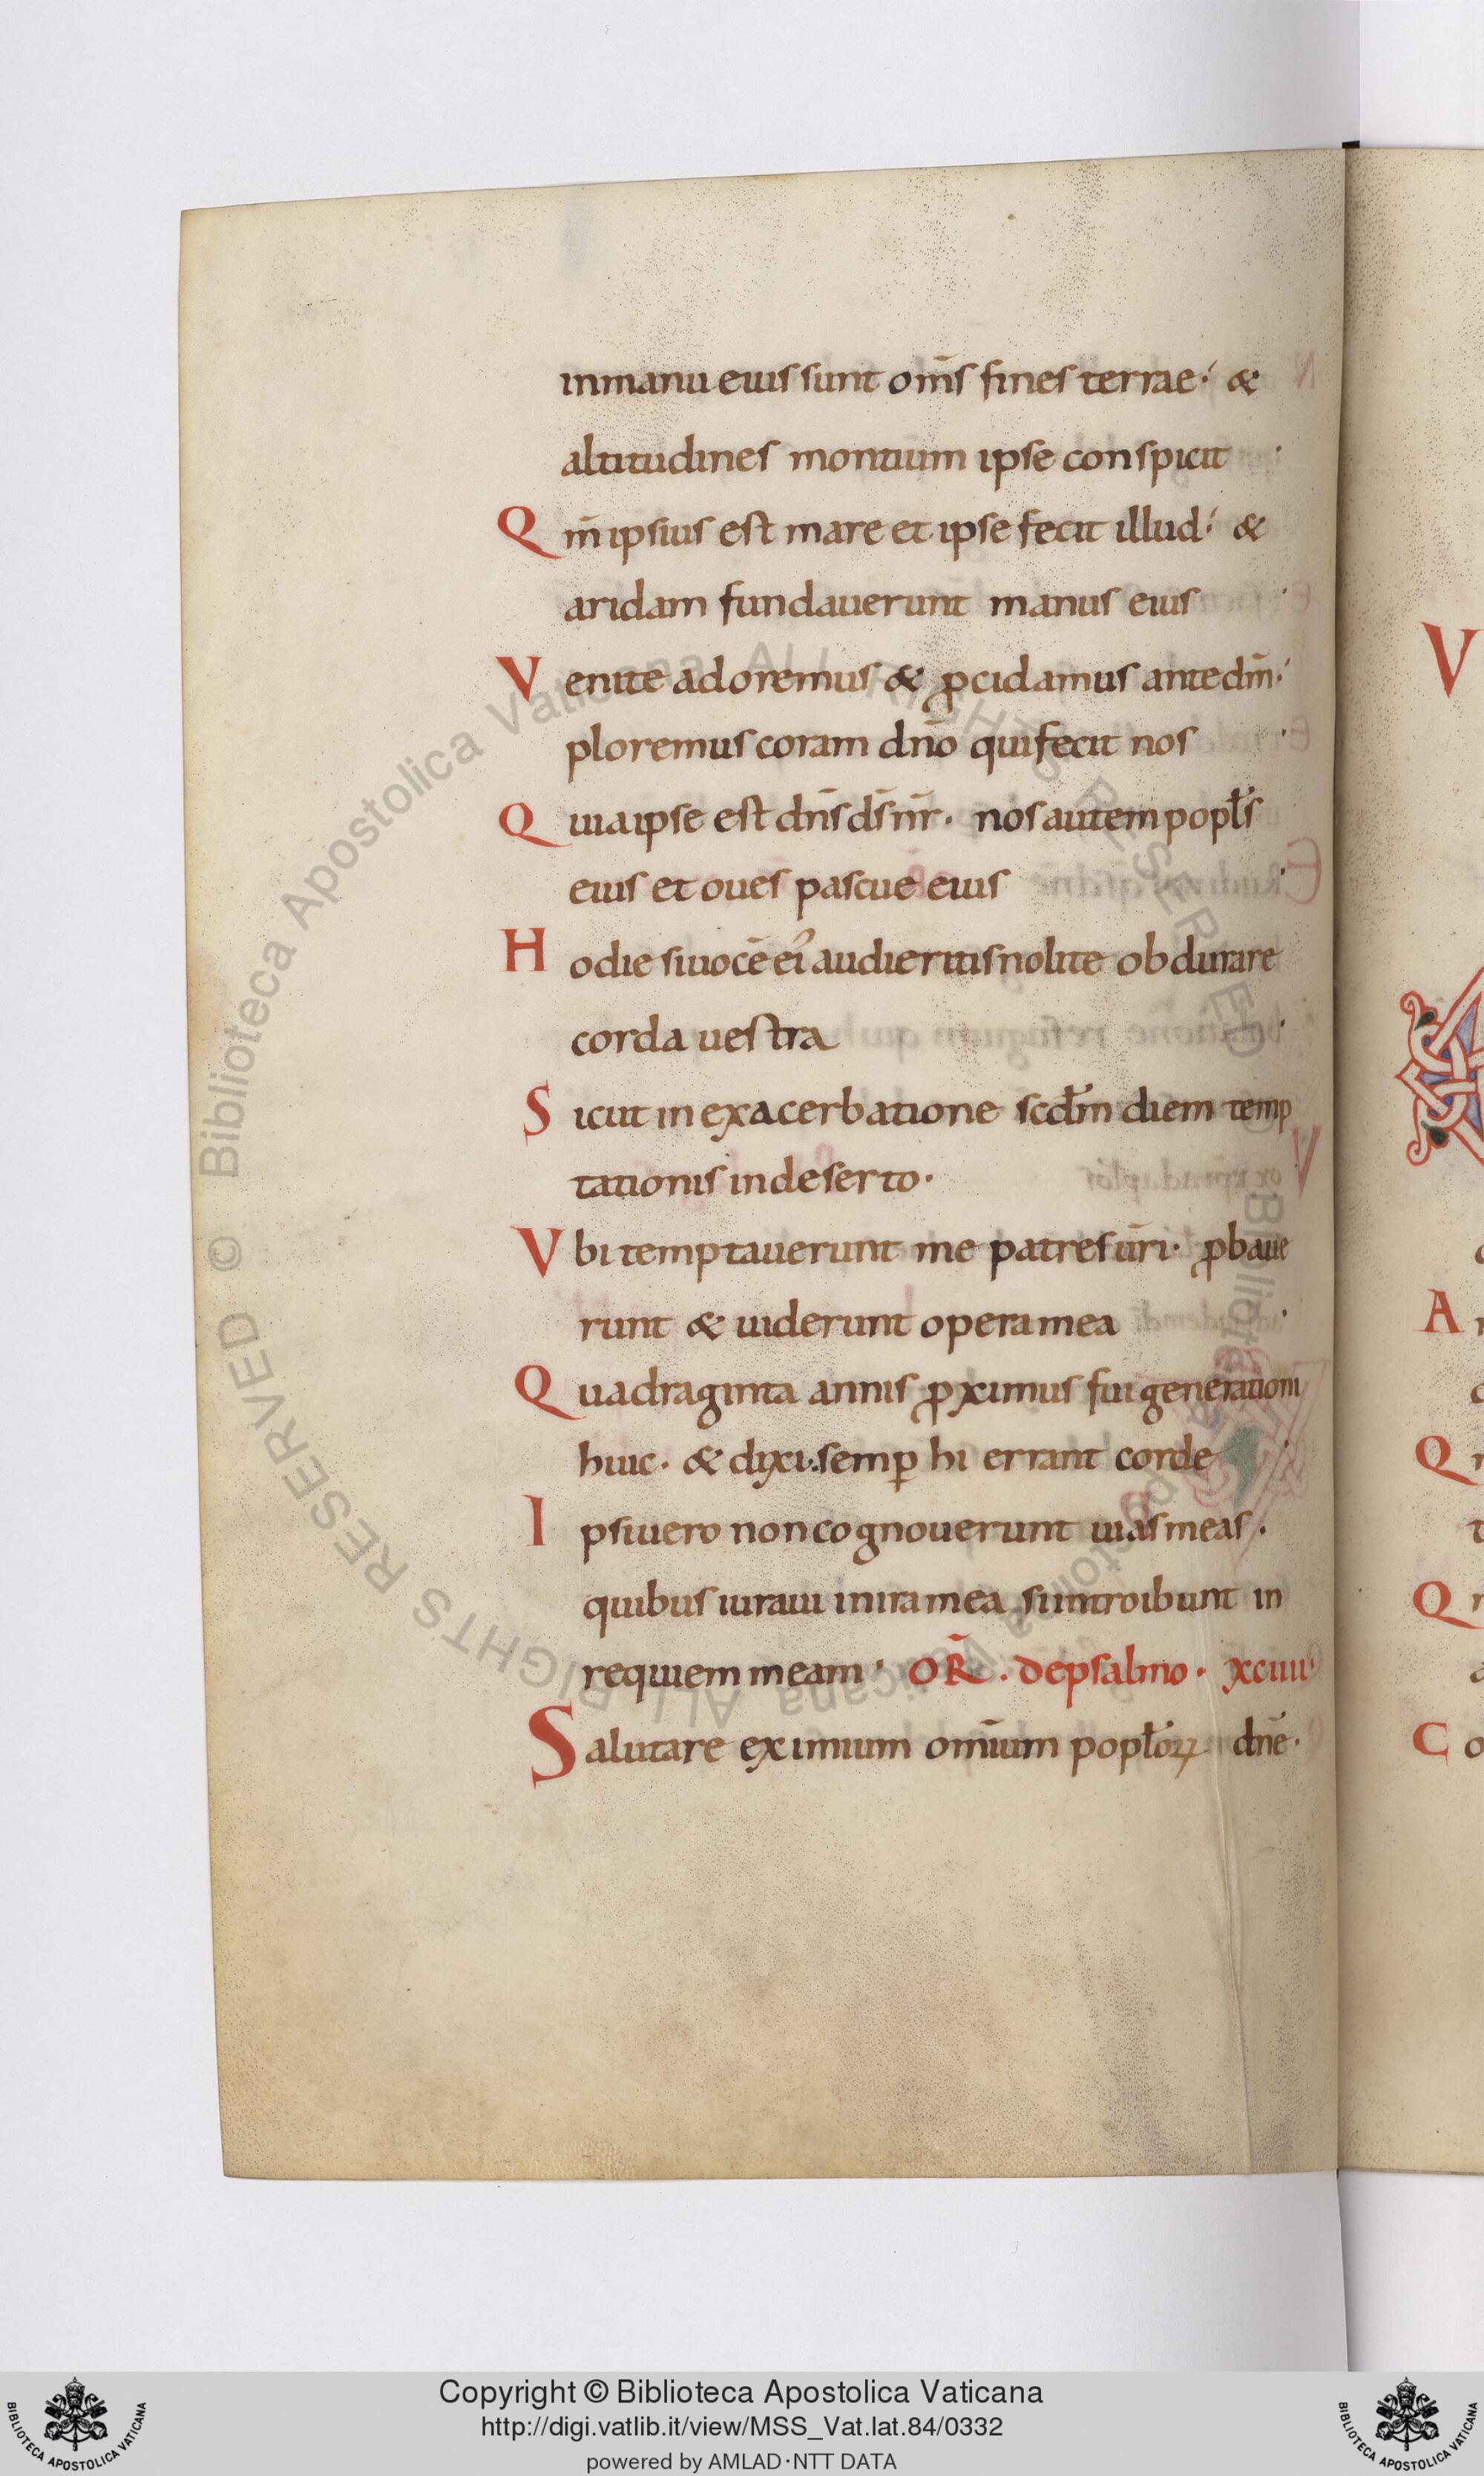 inmanu eius sunt om̅s fines terrae·́ &
altitudines montium ipse conspicit ·
Qm̅ ipsius est mare et ipse fecit illud·́ &
aridam fundauerunt manus eius ·
Venite adoremus & ꝓcidamus ante dm̅·́
ploremus coram dn̅o qui fecit nos ·
Quia ipse est dn̅s ds̅ nr̅· nos autem popl̅s
eius et oues pascue eius ·
Hodie si uoce̅ ei᾿ audieritis nolite obdurare
corda uestra ·
Sicut in exacerbatione scdm̅ diem temp
tationis in deserto·
Vbi temptauerunt me patres ur̅i· ꝓbaue
runt & uiderunt opera mea ·
Quadraginta annis ꝓximus fui generationi
huic· & dixi·semꝑ hi errant corde ·
Ipsi uero non cognouerunt uias meas·
quibus iuraui in ira mea si introibunt in
requiem meam· OR̅· de psalmo· xciiii·
Salutare eximium omi̅um popl̅oꝝ dn̅e·
V
A
Q
Q
C o
Biblioteca Apostolica Vaticana ALL RIGHTS RESERVED ©
Biblioteca Apostolica Vaticana ALL RIGHTS RESERVED ©
Copyright © Biblioteca Apostolica Vaticana
http://digi.vatlib.it/view/MSS_Vat.lat.84/0332
powered by AMLAD·NTT DATA
BIBLIOTECA APOSTOLICA VATICANA
BIBLIOTECA APOSTOLICA VATICANA